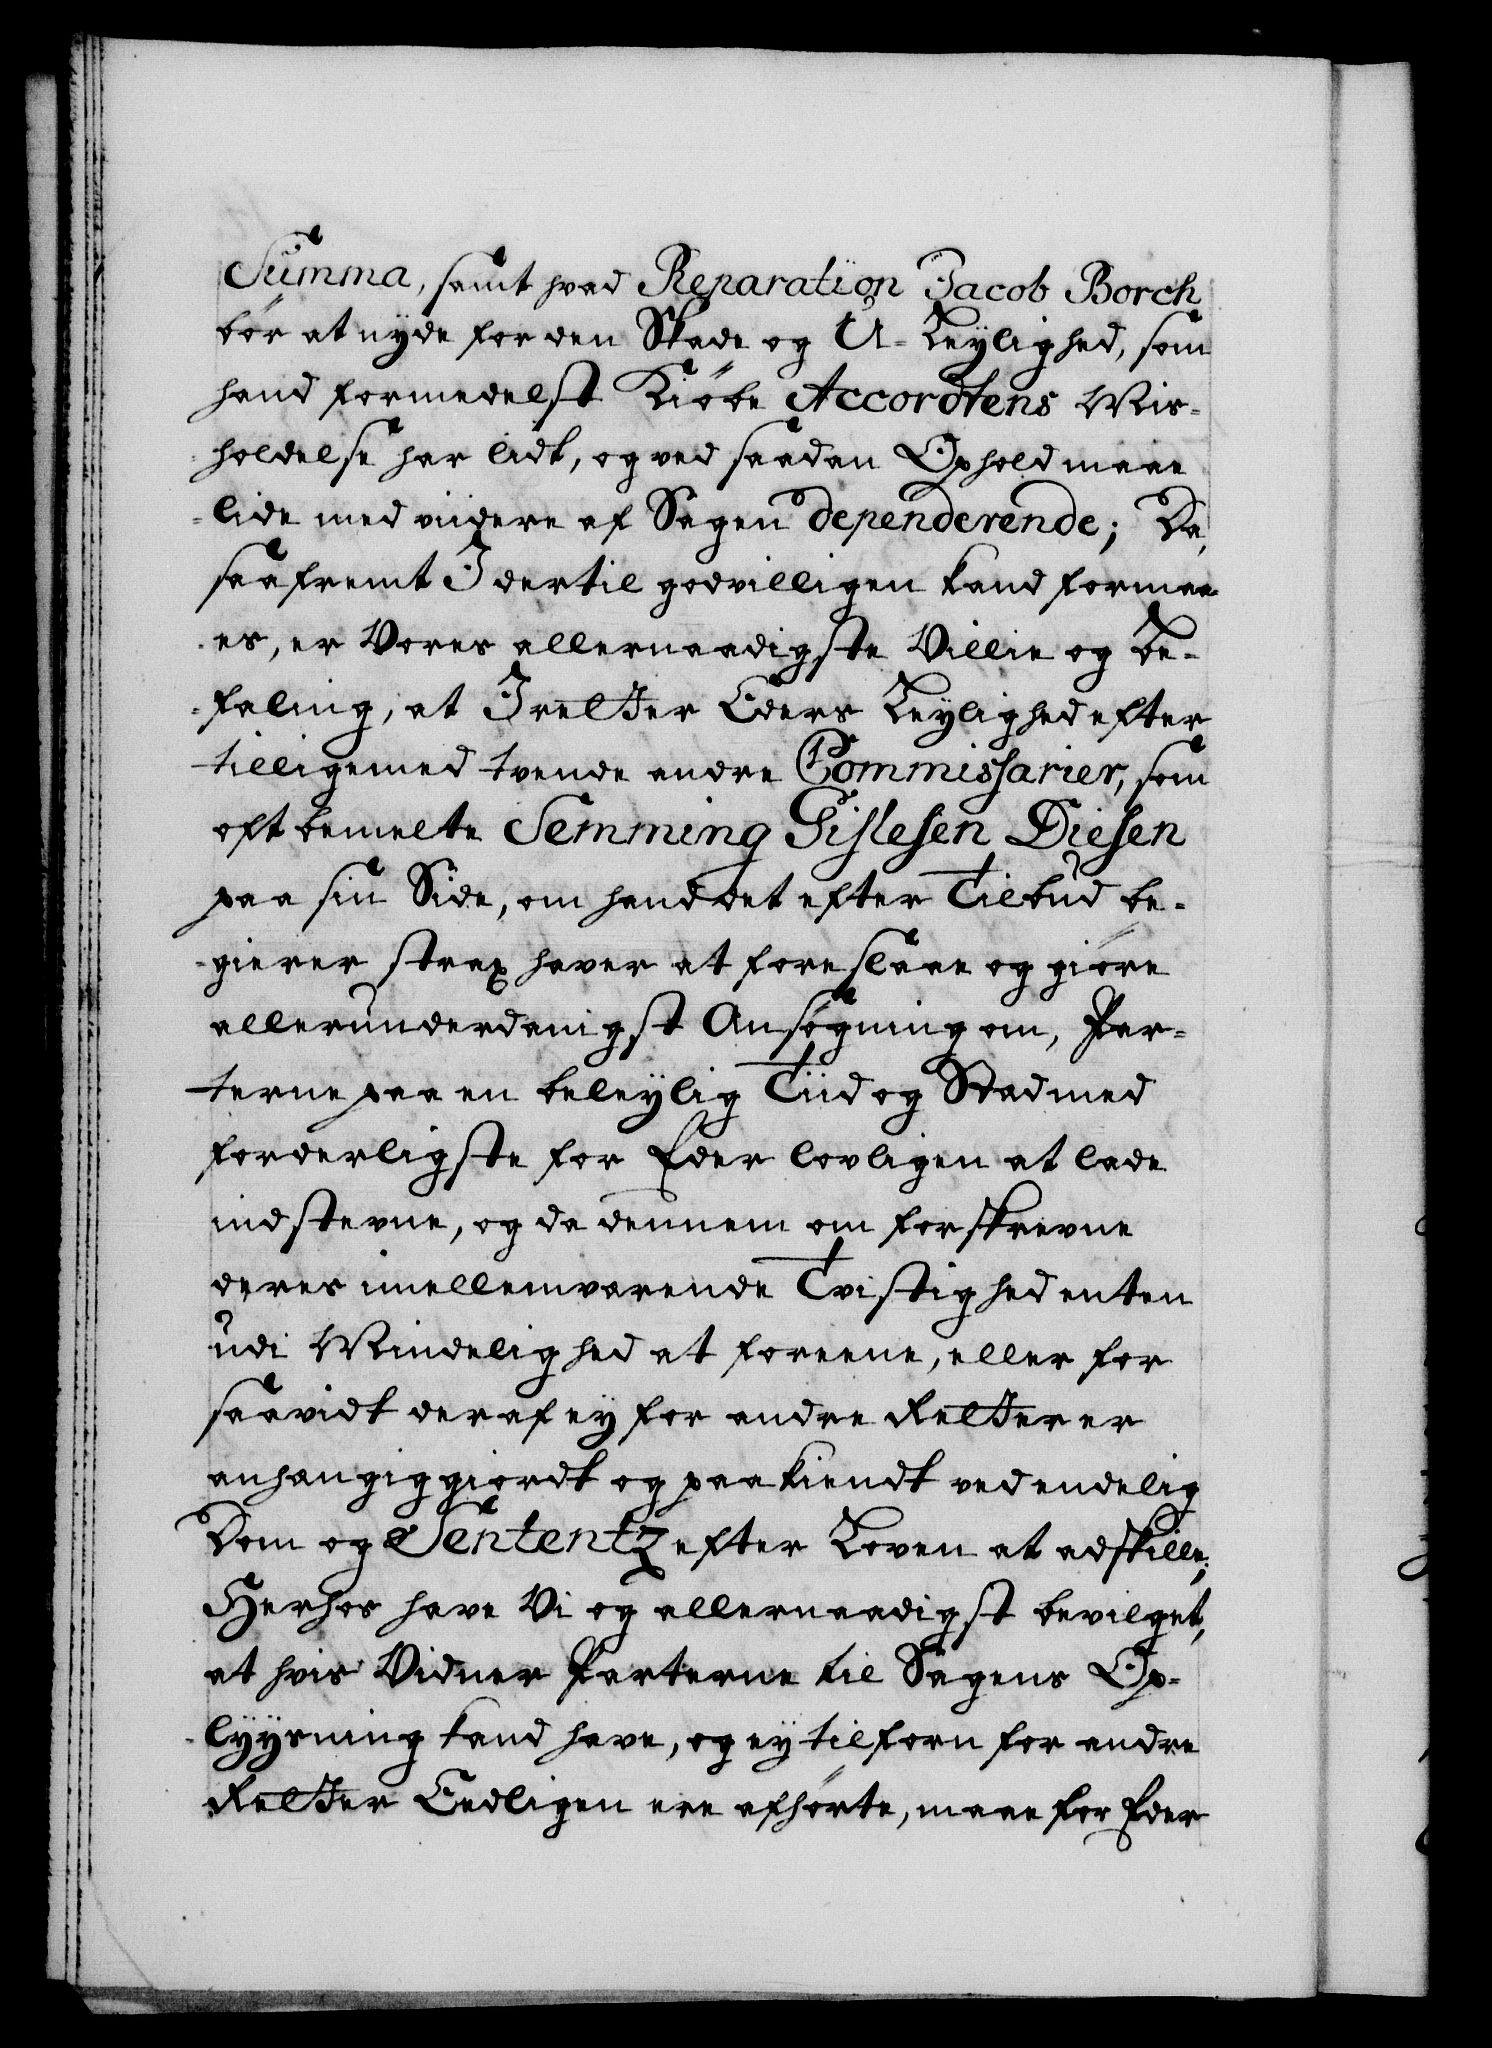 Summa, samt hvad Reparation Jacob Borch
bør at nyde for den Skade og U-Leylighed, som
hand formedelst Kiøbe Accordtens Mis-
holdelse har lidt, og ved saadan Ophold maae
lide med viidere af Sagen dependerende; Da,
saafremt I dertil godvilligen kand formaa-
es, er Vores allernaadigste Villie og Be-
faling, at I retter Eders Leylighed efter
tilligemed tvende andre Commissarier, som
oft bemelte Semming Gislesen Diesen
paa sin Side, om hand det efter Tilbud be-
gierer strax haver at foreslaae og giøre
allerunderdanigst Ansøgning om, Par-
terne paa en beleylig Tiid og Stad med
forderligste for Eder lovligen at lade
indstevne, og da dennem om forskrevne
deres imellemværende Tvistighed enten
udi Mindelighed at foreene, eller for
saavidt deraf ey for andre Retter er
anhængiggiordt og paakiendt ved endelig
Dom og Sententz efter Loven at adskille;
Herhos have Vi og allernaadigst bevilget,
at hvis Vidner Parterne til Sagens Op-
lyysning kand have, og ey tilforn for andre
Retter Eedligen ere afhørte, maae for Eder